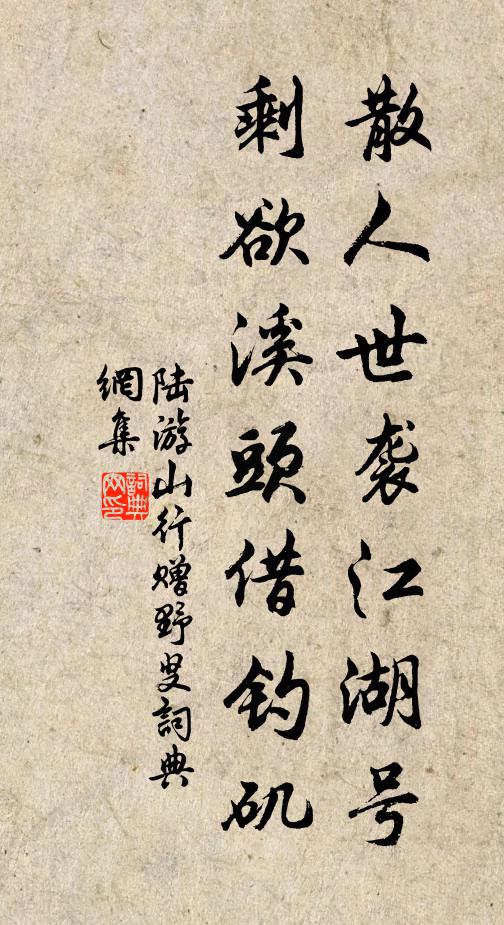 散人世袭江湖号
剩欲溪頭借钓矶
陆游山行赠野叟詞典
網集
詞典
网印